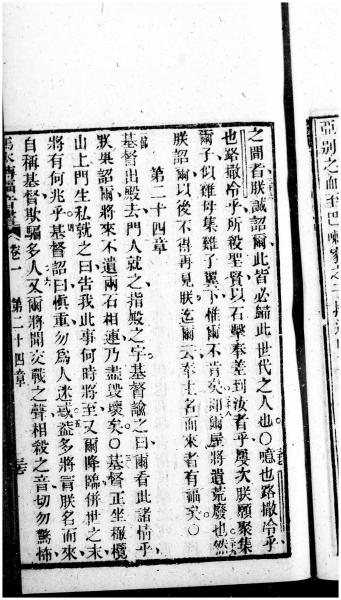 亞別之血至巴
之間者朕誠詔爾此皆必歸此世代之人也〇噫也路撒冷乎
也路撒冷乎所殺聖賢以石擊奉差到汝者乎屢次朕願聚集
爾子似雞母集雞子翼下惟爾不肯矣爾屋將遺荒廢也然
朕詔爾以後不得再見朕迄爾云奉主名而來者有福矣〇
第二十四章
基督出殿去門人就之指殿之宇基督諭之曰爾看此諸情乎
朕果詔爾將來不遺兩石相連乃盡毀壞矣〇基督正坐橄欖
山上門生私就之曰告我此事何時將至又爾降臨併世之末
將有何兆乎基督詔曰慎重勿為人迷惑蓋多將冒朕名而來
自稱基督欺騙多人又爾將聞交戰之聲相殺之音切勿驚怖
書 卷一 第二十四章